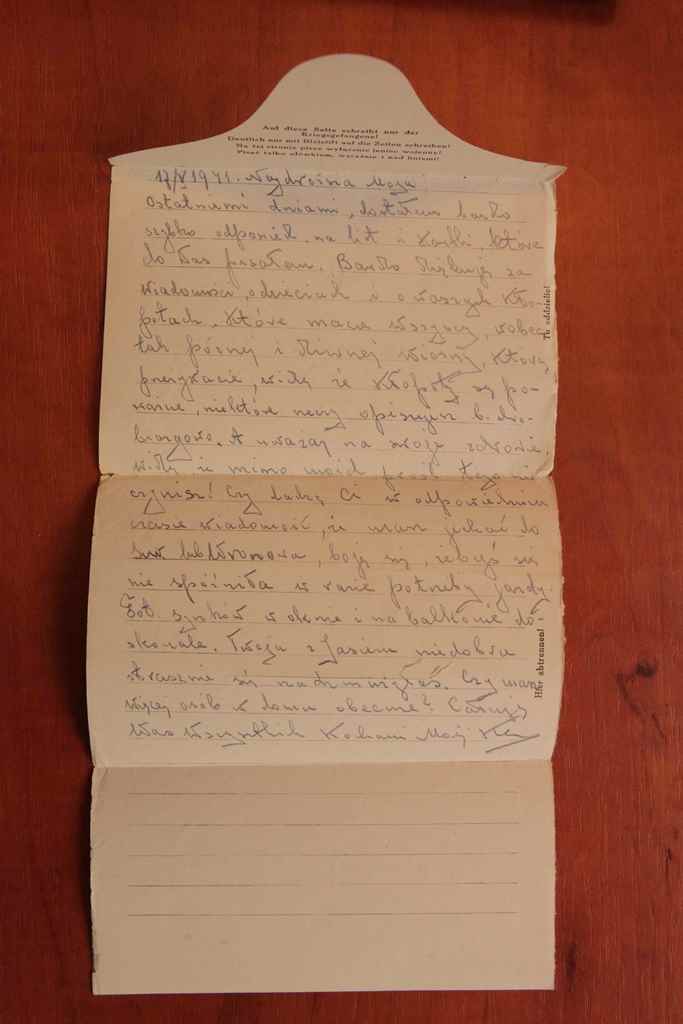 Auf diese Seite schreibt nur der
Kriegsgefangene!
Deutlich nur mit Bleistift auf die Zeilen schreiben!
Na tej stronie pisze wyłącznie jeniec wojenny!
Pisać tylko ołówkiem, wyraźnie i nad liniami!
17/V 1941. Najdroższa Moja
Ostatniemi dniami, dostałem bardzo
szybko odpowiedź na list i kartki, które
do Was pisałem. Bardzo dziękuję za
wiadomości, o dzieciach i o waszych kło-
potach, które macie wszyscy, wobec
tak późnej i dziwnej wiosny, którą
przeżywacie, widzę że kłopoty są po-
ważne, niektóre rzeczy opisujesz b. dro-
biazgowo. A uważaj na swoje zdrowie,
widzę że mimo moich próśb tego nie
czynisz! Czy dadzą Ci w odpowiednim
czasie wiadomość, że masz jechać do
boję się, żebyś się
nie spóźniła w razie potrzeby jazdy.
Fot. synków w oknie i na balkonie do-
skonałe. Twoja z Jasiem niedobra
strasznie się Czy masz
więcej osób w domu obecnie? Całuję
Was Wszystkich Kochani Moi
Tu oddzielić!
Hier abtrennen!